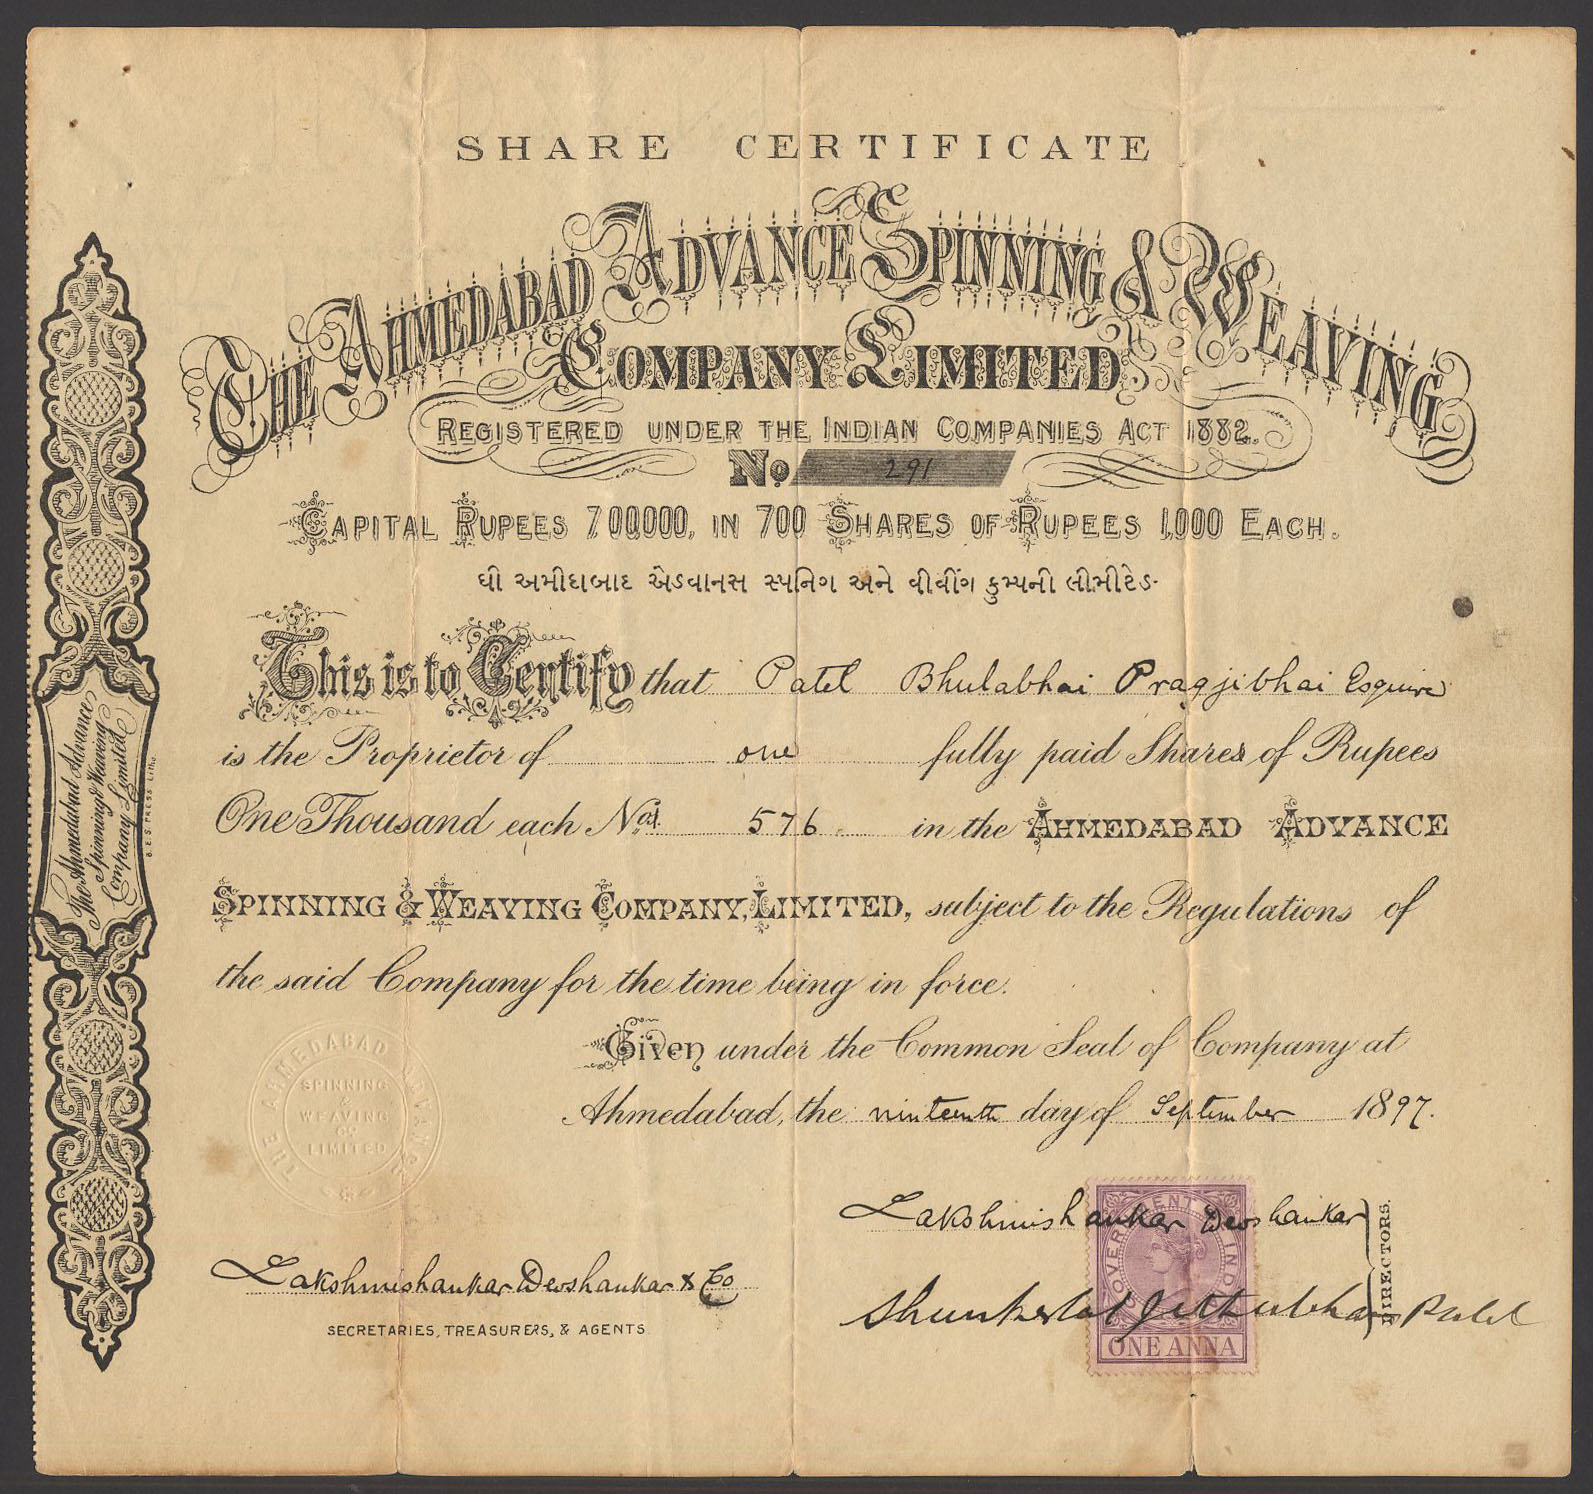 SHARE CERTIFICATE
THE AHMEDABAD ADVANCE SPINNING & WEAVING
COMPANY LIMITED
REGISTERED UNDER THE INDIAN COMPANIES ACT 1882.
No 291
CAPITAL RUPEES 700,000, IN 700 SHARES OF RUPEES 1,000 EACH.
ધી અમીદાબાદ એડવાનસ સ્પનિગ અને વીવીંગ કુમ્પની લીમીટેડ
This is to Certify that Patel Bhulabhai Pragjibhai Esquire
is the Proprietor of one fully paid Shares of Rupees
One Thousand each Nos. 576. in the AHMEDABAD ADVANCE
SPINNING & WEAVING COMPANY, LIMITED, subject to the Regulations of
the said Company for the time being in force.
Given under the Common Seal of Company at
Ahmedabad, the ninteenth day of September 1897.
THE AHMEDABAD ADVANCE CO
SPINNING
&
WEAVING
LIMITED
Lakshmishankar Devshankar
Lakshmishankar Devshankar & Co
SECRETARIES, TREASURERS, & AGENTS
Patel
DIRECTORS.
GOVERNMENT INDIA
ONE ANNA
The Ahmedabad Advance
Spinning & Weaving
Company Limited
B.E.S. PRESS Litho.